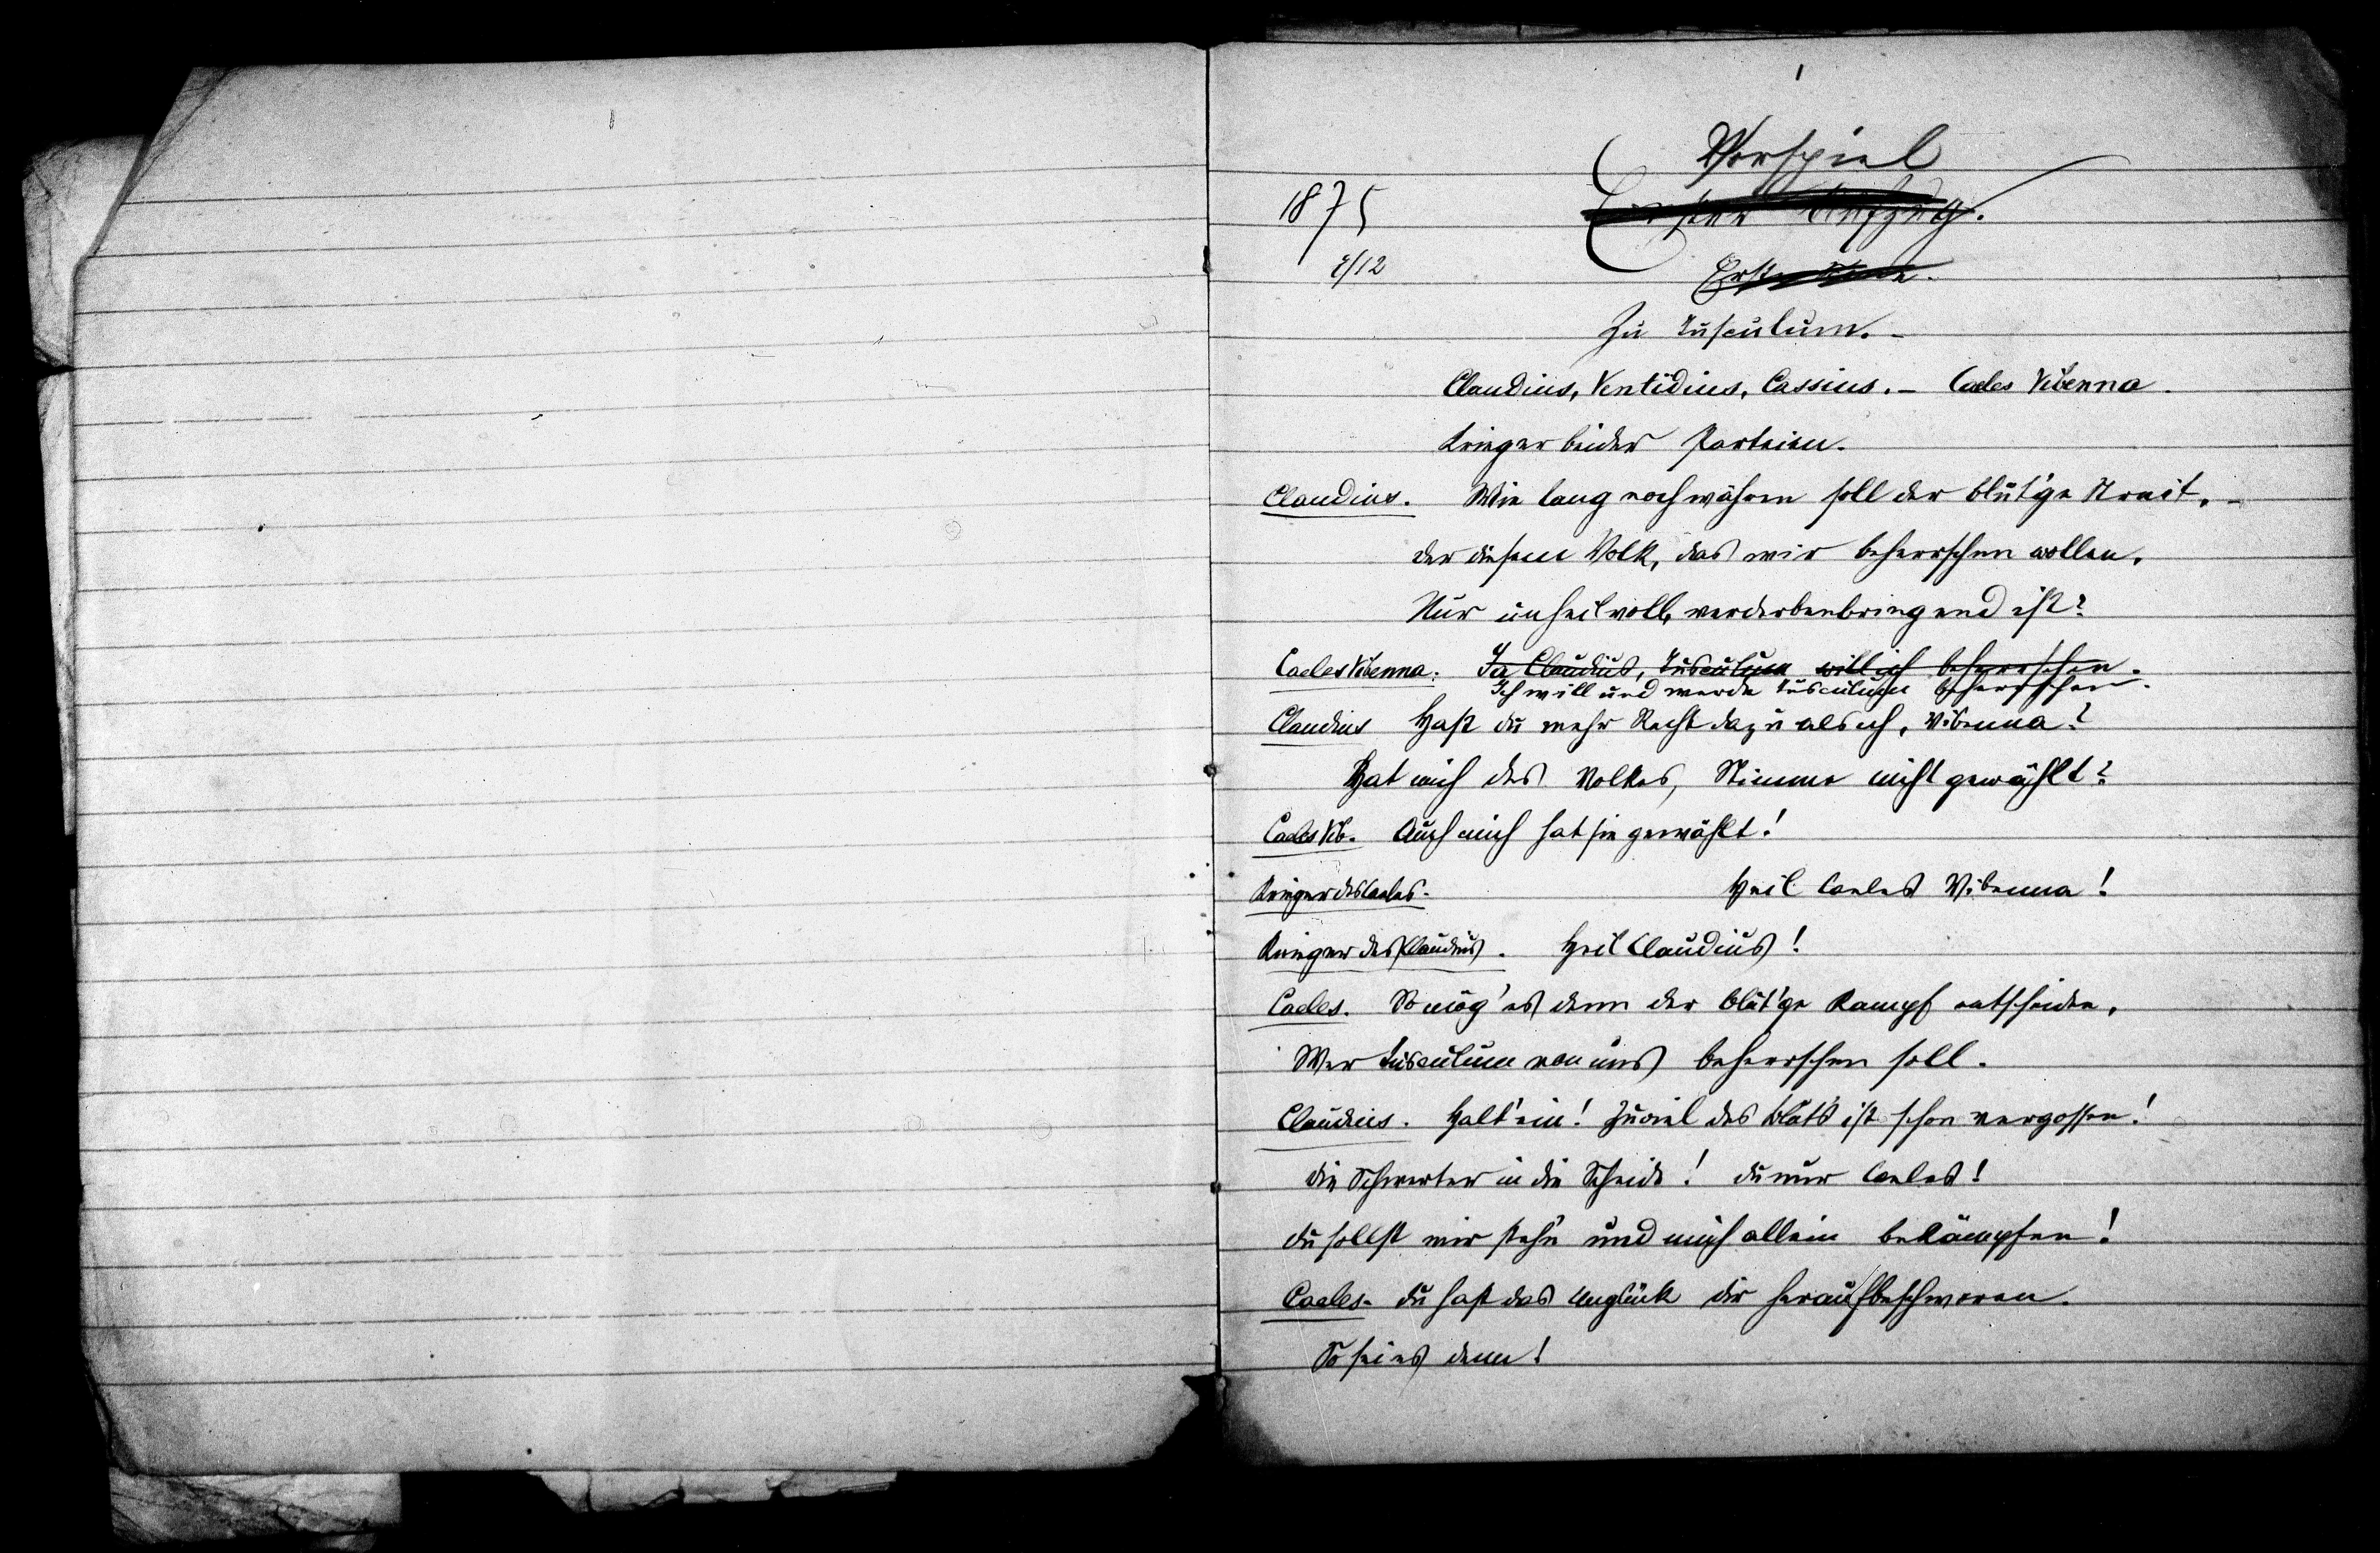 1
Vorspiel
1875
Erster Aufzug.
4/12
Erste Scene.
Zu Tusculum. –
Claudius, Ventidius, Cassius. – Caeles Vibenna.
Krieger beider Parteien.
Claudius. Wie lang noch währen soll der blut'ge Streit, –
der diesem Volk, das wir beherrschen wollen,
Nur unheilvoll, verderbenbringend ist?
Caeles Vibenna. Ja Claudius, Tusculum will ich beherrschen.
Ich will und werde Tusculum beherrschen.
Claudius Hast du mehr Recht dazu als ich, Vibenna?
Hat mich des Volkes, Stimme nicht gewählt?
Caeles Vib. Auch mich hat sie gewählt!
Krieger des Caeles. Heil Caeles Vibenna!
Krieger des Claudius. Heil Claudius!
Caeles. So mög' es denn der blut'ge Kampf entscheiden,
Wer Tusculum von uns beherrschen soll.
Claudius. Halt' ein! Zuviel des Bluts ist schon vergossen!
die Schwerter in die Scheide! du nur Caeles!
du sollst mir stehn und mich allein bekämpfen!
Caeles. du hast das Unglück dir heraufbeschworen.
So sei es denn!